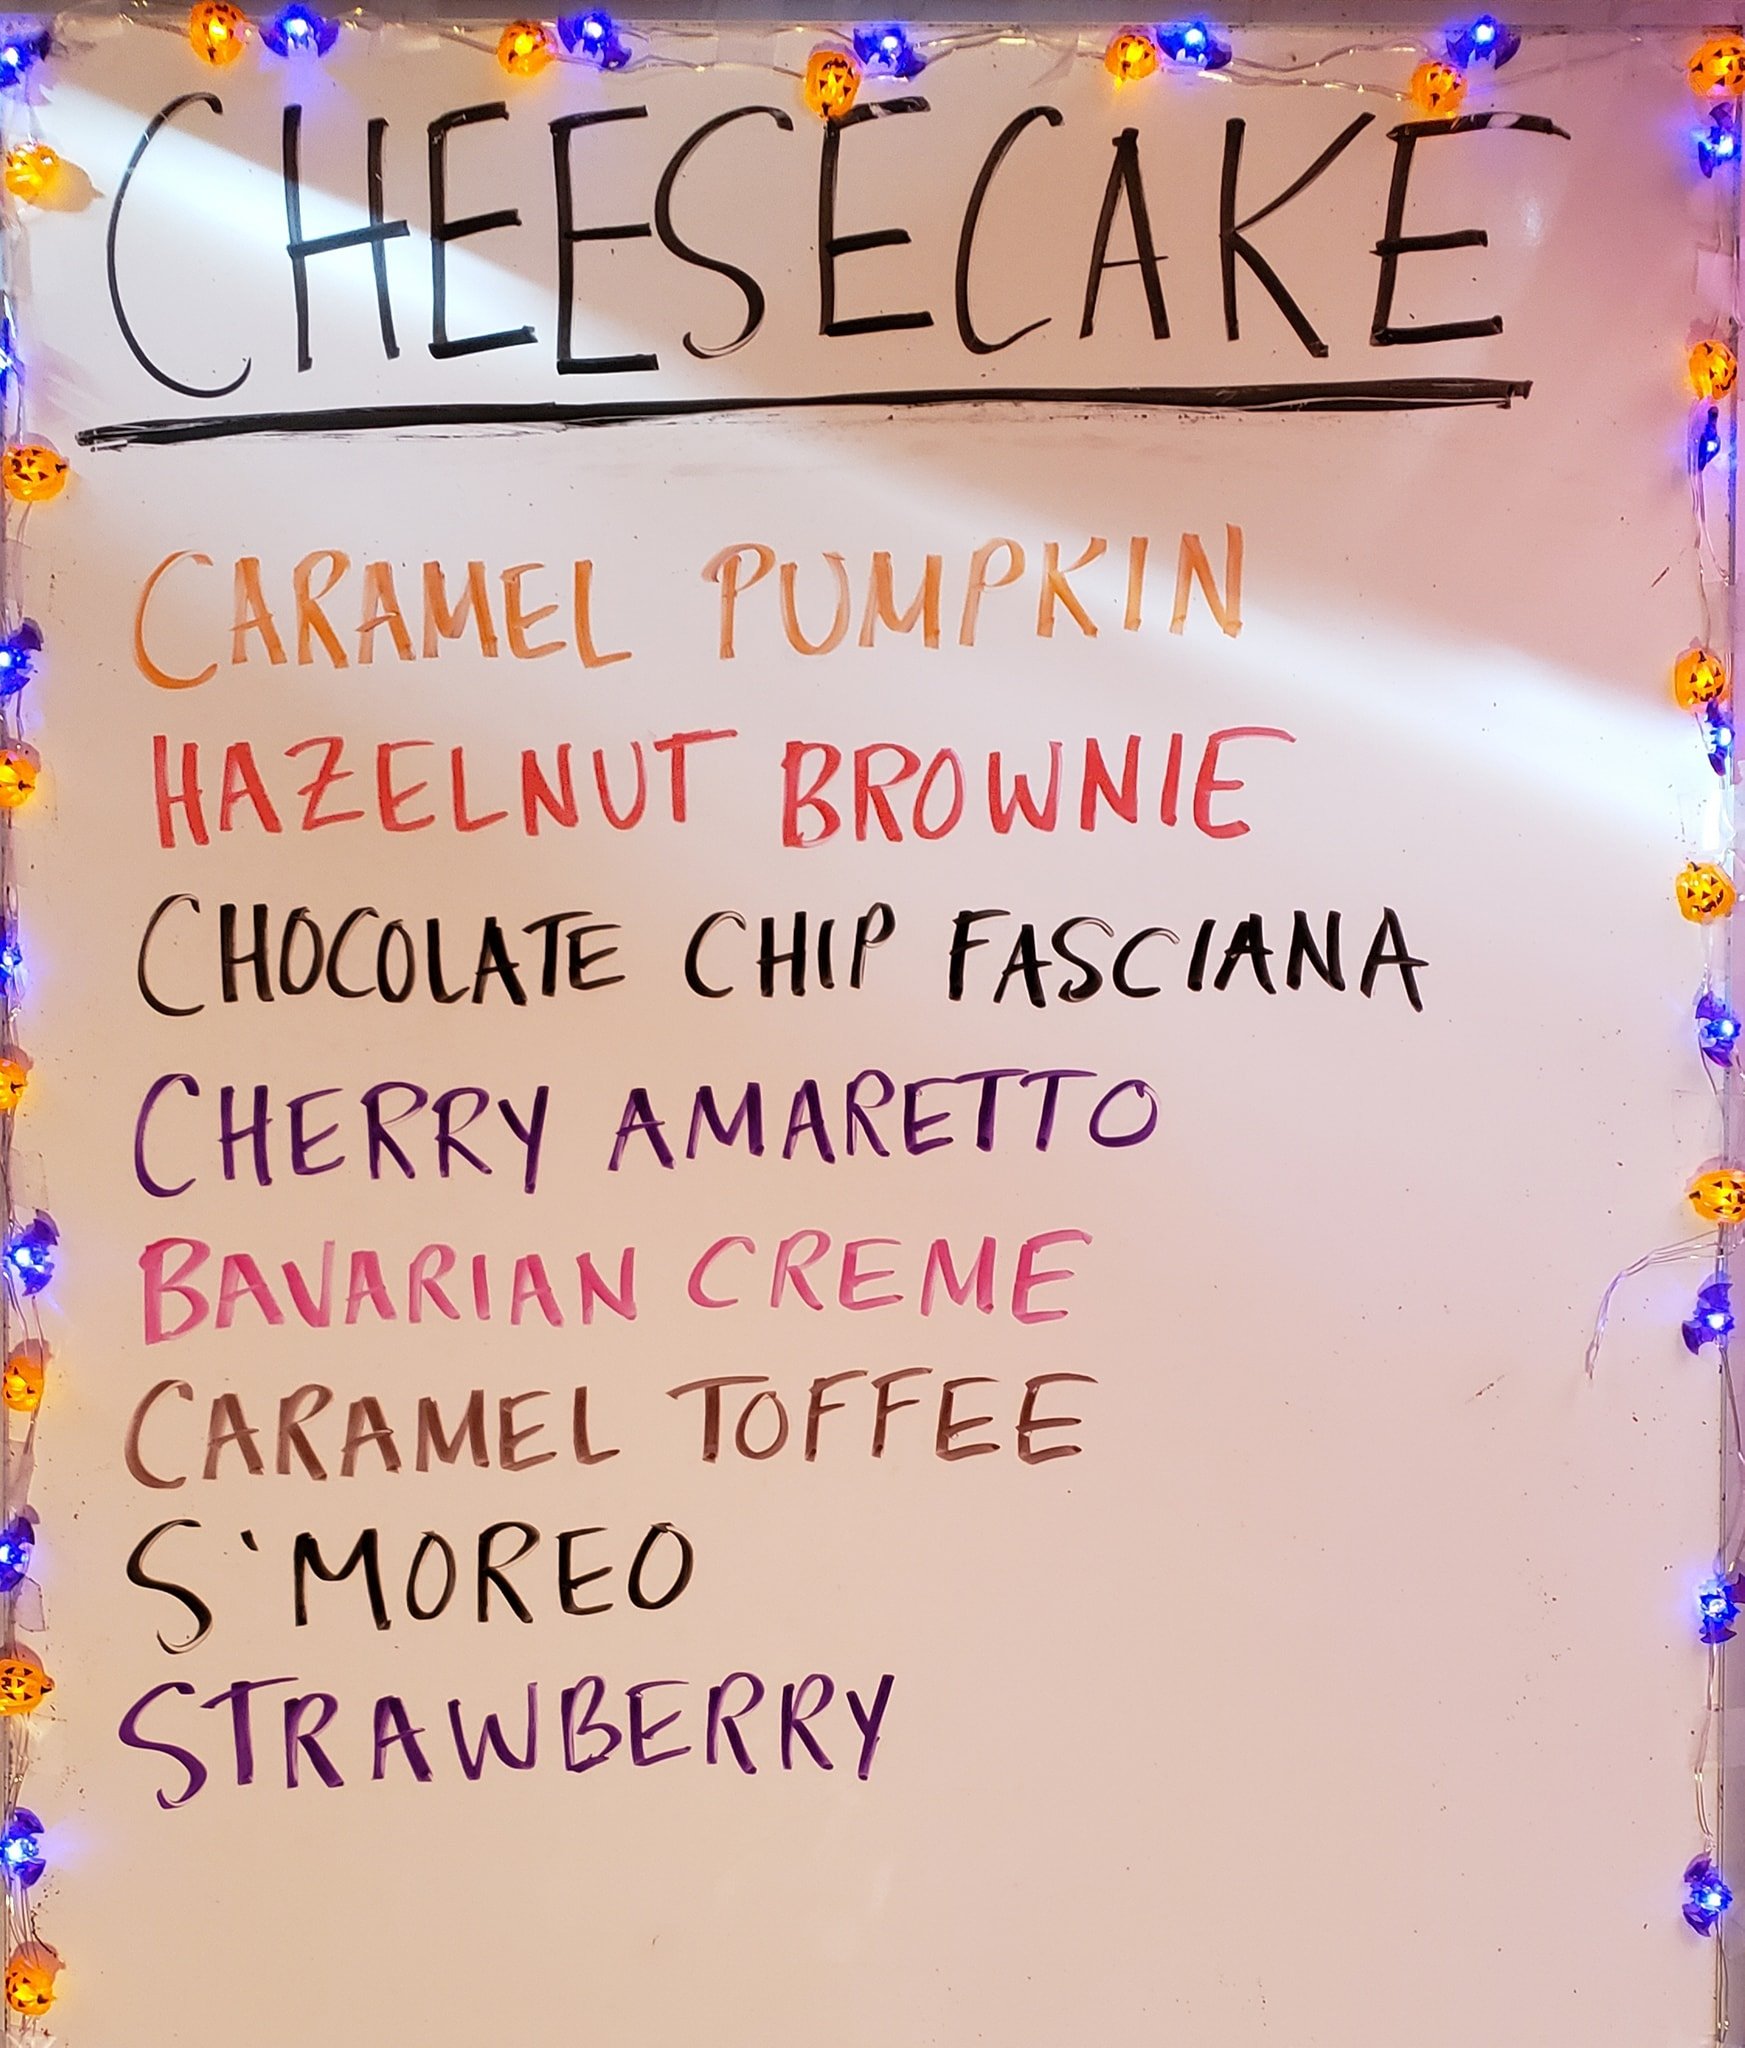 CHEESECAKE
CARAMEL PUMPKIN
HAZELNUT BROWNIE
CHOCOLATE CHIP FASCIANA
CHERRY AMARETTO
BAVARIAN CREME
CARAMEL TOFFEE
S'MOREO
STRAWBERRY